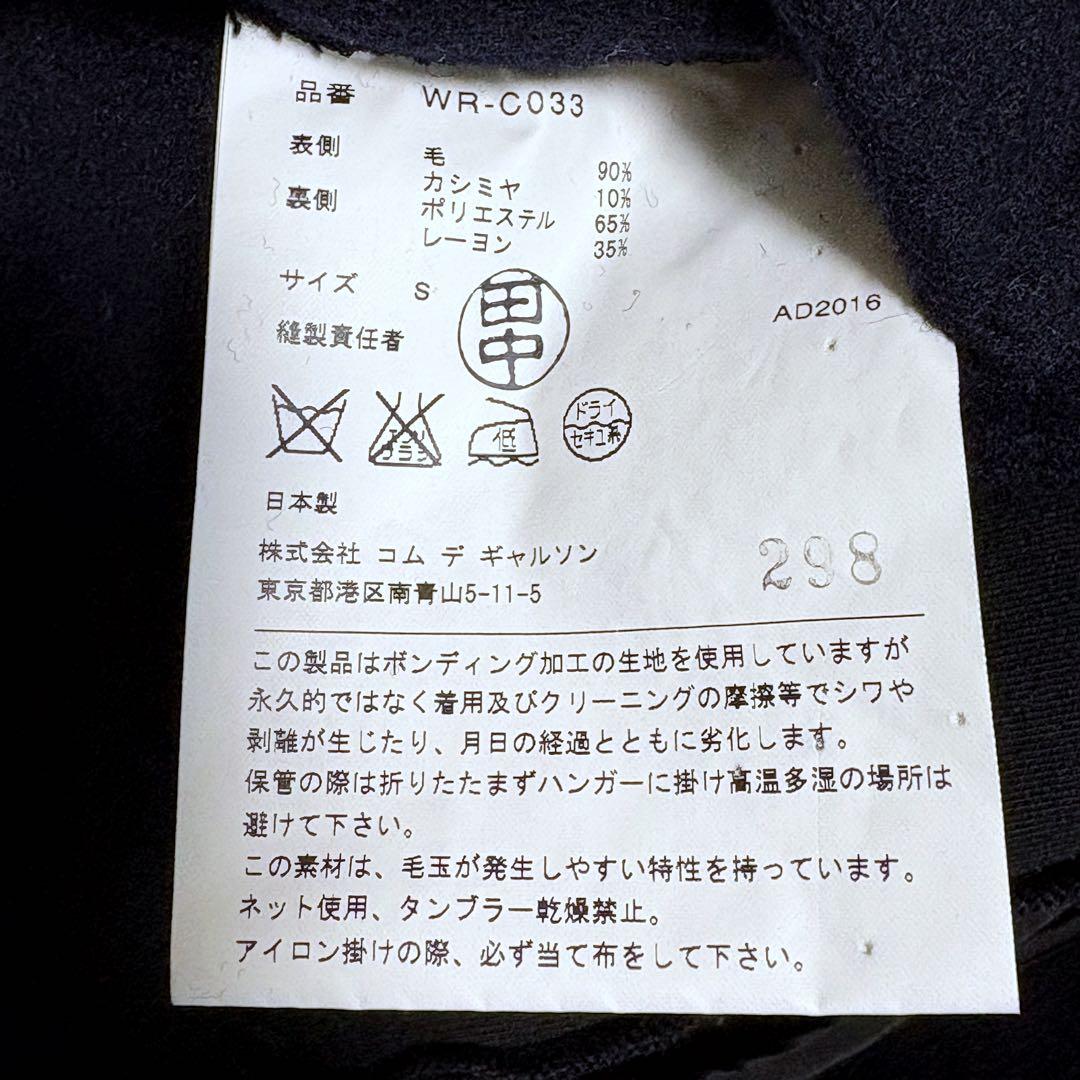 品番 WR-C033
表側 毛 90%
カシミヤ 10%
裏側 ポリエステル 65%
レーヨン 35%
サイズ S
縫製責任者 田中
AD2016
エンソ サラシ 低 ドライ セキユ系
日本製
株式会社 コム デ ギャルソン
東京都港区南青山5-11-5
298
この製品はボンディング加工の生地を使用していますが
永久的ではなく着用及びクリーニングの摩擦等でシワや
剥離が生じたり、月日の経過とともに劣化します。
保管の際は折りたたまずハンガーに掛け高温多湿の場所は
避けて下さい。
この素材は、毛玉が発生しやすい特性を持っています。
ネット使用、タンブラー乾燥禁止。
アイロン掛けの際、必ず当て布をして下さい。